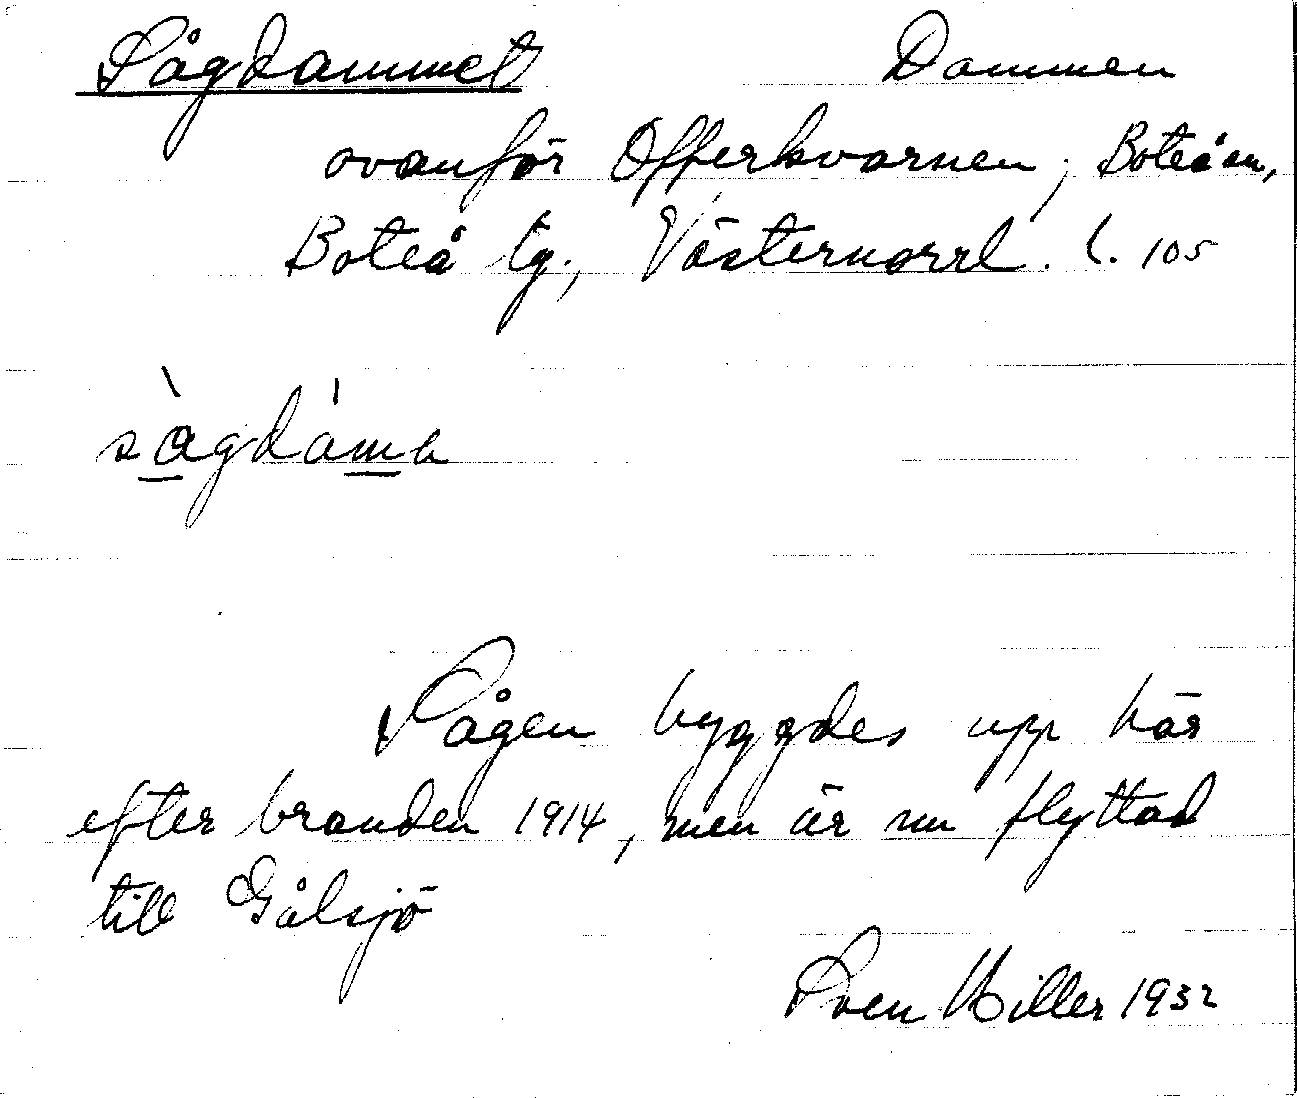 Sågdammet Dammen
ovanför Offerkvarnen, Boteåån,
Boteå tg., Västernorrl. l. 105
sàgdám
Sågen byggdes upp här
efter branden 1914, men är nu flyttad
till Gålsjö
Sven Hiller 1932